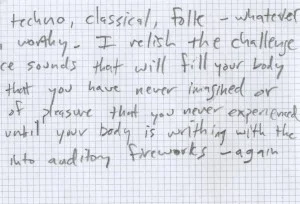 techno, classical, folk - whatever
worthy. I relish the challenge
ce sounds that will fill your body
that you have never imagined or
of pleasure that you never experienced
until your body is writhing with the
into auditory fireworks - again